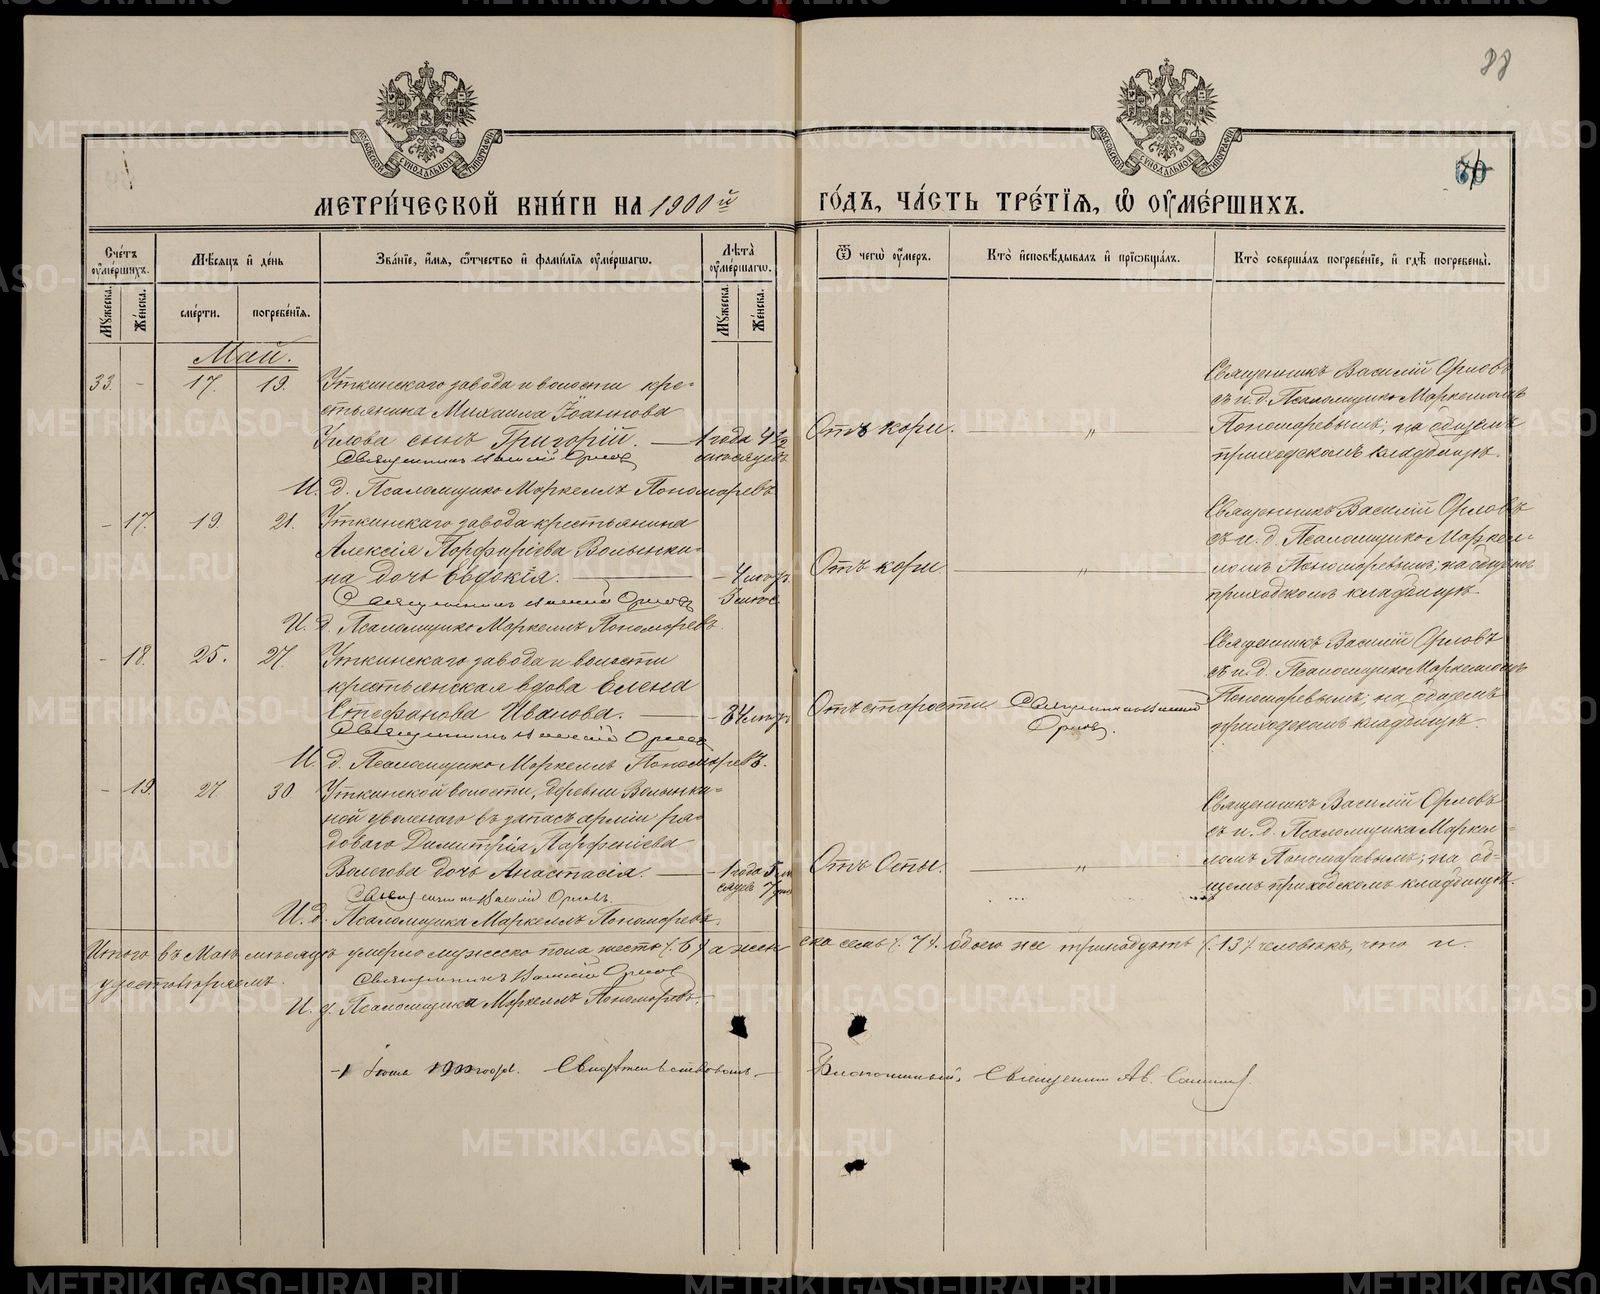 88
70
МЕТРИ́ЧЕСКОЙ КНИ́ГИ НА 1900й ГО́ДЪ, ЧА́СТЬ ТРЕ́ТІѦ, Ѿ ОУ҆МЕ́РШИХЪ.
Сче́тъ оу҆ме́ршихъ.
Мѣ́сяцъ и҆ де́нь
Зва́нїе, и҆́мя, ѻ҆́тчество и҆ фами́лїя оу҆ме́ршагѡ.
Лѣ́та оу҆ме́ршагѡ.
Ѿ чегѡ̀ оу҆́меръ.
Кто̀ и҆сповѣ́дывалъ и҆ прїѡбща́лъ.
Кто̀ соверша́лъ погребе́нїе, и҆ гдѣ̀ погребены̀.
Му́жеска.
Же́нска.
сме́рти.
погребе́нїя.
Му́жеска.
Же́нска.
Май.
33. - 17. 19.
Уткинскаго завода и волости кре-
стьянина Михаила Іоаннова
Углова сынъ Григорій. — 1 года 4 1/2
мѣсяцевъ
Священникъ Василій Орловъ
И. д. Псаломщика Маркеллъ Пономаревъ
Отъ кори. — „ —
Священникъ Василій Орловъ
съ и. д. Псаломщика Маркелломъ
Пономаревымъ; на общемъ
приходскомъ кладбищѣ.
- 17. 19. 21.
Уткинскаго завода крестьянина
Алексія Порфиріева Волынки-
на дочь Евдокія. —
Священникъ Василій Орловъ
И. д. Псаломщика Маркеллъ Пономаревъ.
Отъ кори — „ —
Священникъ Василій Орловъ
съ и. д. Псаломщика Маркел-
ломъ Пономаревымъ; на общемъ
приходскомъ кладбищѣ.
- 18. 25. 27.
Уткинскаго завода и волости
крестьянская вдова Елена
Стефанова Иванова. —
Священникъ Василій Орловъ
И. д. Псаломщика Маркеллъ Пономаревъ.
Отъ старости
Священникъ Василій
Орловъ.
Священникъ Василій Орловъ
съ и. д. Псаломщика Маркелломъ
Пономаревымъ; на общемъ
приходскомъ кладбищѣ.
- 19. 27 30
Уткинской волости, деревни Волынки-
ной уволеннаго въ запасъ арміи ря-
доваго Димитрія Парфеніева
Волегова дочь Анастасія. — 1 года 5 мѣ
сяцъ 7 дней
Священникъ Василій Орловъ.
И. д. Псаломщика Маркеллъ Пономаревъ.
Отъ Оспы. — „ —
Священникъ Василій Орловъ
съ и. д. Псаломщика Маркел-
ломъ Пономаревымъ; на об-
щемъ приходскомъ кладбищѣ.
Итого въ Маѣ мѣсяцѣ умерло мужеско пола шесть /. 6 / а жен ска семь /. 7 /. обоего же тринадцать /. 13 / человѣкъ, что и
удостовѣряемъ.
Священникъ Василій Орловъ
И. д. Псаломщика Маркеллъ Пономаревъ.
1 Іюня 1900 года. Свидѣтельствовалъ —
Благочинный, Священникъ Ав.
METRIKI.GASO-URAL.RU